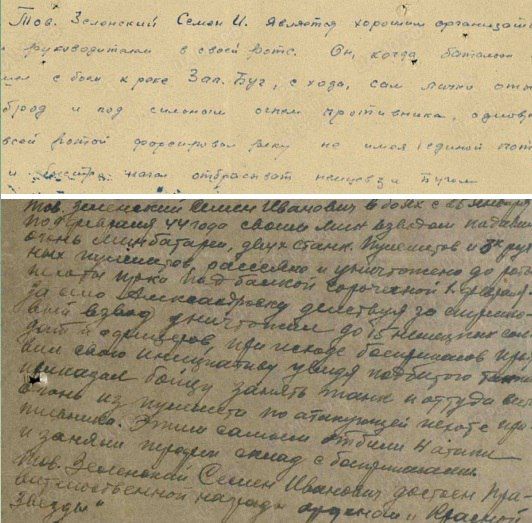 Тов. Зеленский Семен И. является хорошим организат
и руководителем в своей роте. Он, когда батальон
шел с боем к реке Зап. Буг, с хода, сам лично оты
брод и под сильным огнем противника, одновр
всей ротой форсировал реку не имея единой пот
и быстро начал отбрасывать немцев за Бугом
Тов. Зеленский Семен Иванович в боях с 26 января
по февраля 44 года своим мин. взводом подавил
огонь мин. батареи, двух станк. пулеметов и 3х руч
ных пулеметов, рассеяно и уничтожено до роты
пехоты пр-ка. Под балкой Сорочкиной 1 февраля
за село Александровку действуя за стрелко-
вый взвод уничтожил до 15 немецких сол
дат и офицеров, при исходе боеприпасов про
вил свою инициативу увидя подбитого танк
приказал бойцу занять танк и оттуда вести
огонь из пулемета по атакующей пехоте про
тивника. Этим самым отбили атаки
и заняли передом склад с боеприпасами.
Тов. Зеленский Семен Иванович достоен Пра-
вительственной награды орденом "Красной
Звезды"